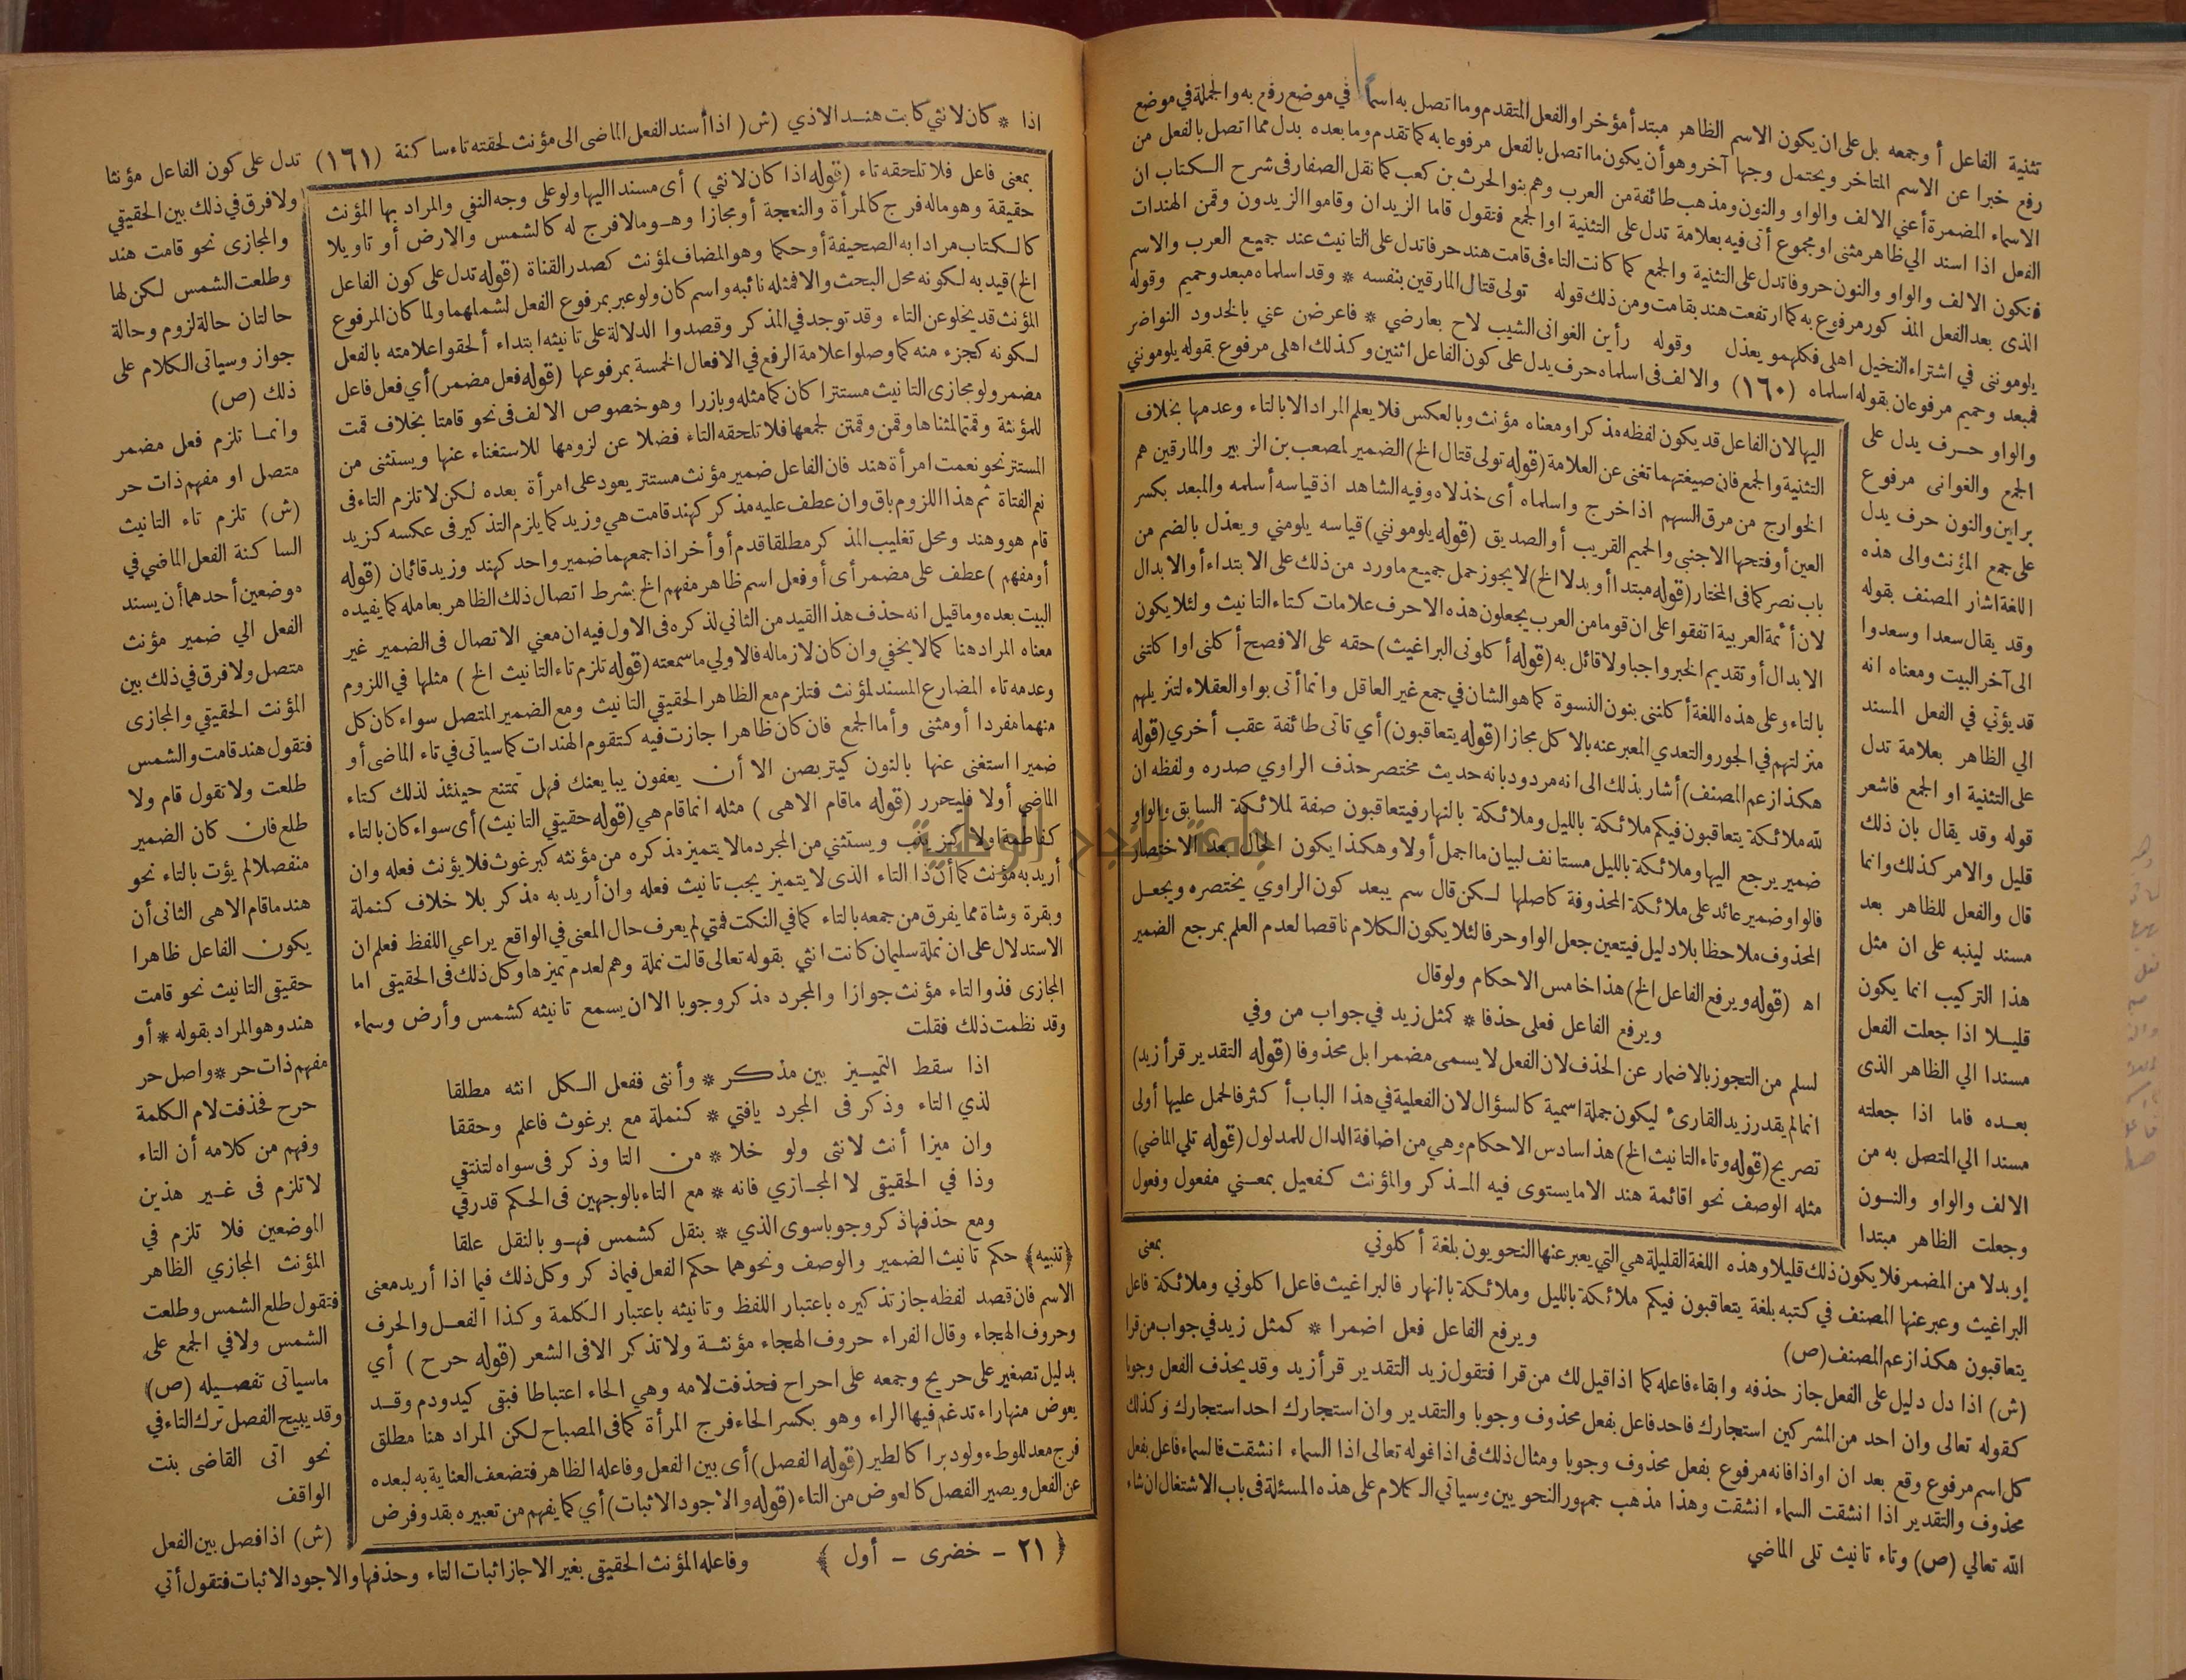 تثنية الفاعل أ وجمعه بل على ان يكون الاسم الظاهر مبتدأ مؤخرا والفعل المتقدم وما اتصل به اسما في موضع رفع به والجملة في موضع
رفع خبرا عن الاسم المتاخر ويحتمل وجها آخر وهو أن يكون ما اتصل بالفعل مرفوعا به كما تقدم وما بعده بدل مما اتصل بالفعل من
الاسماء المضمرة أعني الالف والواو والنون ومذهب طائفة من العرب وهم بنو الحرث بن كعب كما نقل الصفار فى شرح الكتاب ان
الفعل اذا اسند الي ظاهر مثنى او مجموع أتى فيه بعلامة تدل على التثنية او الجمع فتقول قاما الزيدان وقاموا الزيدون وقمن الهندات
فتكون الالف والواو والنون حروفا تدل على التثنية والجمع كما كانت التاء فى قامت هند حرفا تدل على التانيث عند جميع العرب والاسم
الذى بعد الفعل المذكور مرفوع به كما ارتفعت هند بقامت ومن ذلك قوله تولى قتال المارقين بنفسه * وقد اسلماه مبعد وحميم وقوله
يلومونني في اشتراء النخيل اهلى فكلهمو يعذل وقوله رأين الغوانى الشيب لاح بعارضي * فاعرضن عني بالخدود النواضر
فمبعد وحميم مرفوعان بقوله اسلماه (١٦٠) والالف فى اسلماه حرف يدل على كون الفاعل اثنين وكذلك اهلى مرفوع بقوله يلومونني
والواو حرف يدل على
الجمع والغوانى مرفوع
براين والنون حرف يدل
على جمع المؤنث والى هذه
اللغة اشار المصنف بقوله
وقد يقال سعدا وسعدوا
الى آخر البيت ومعناه انه
قد يؤتي في الفعل المسند
الي الظاهر بعلامة تدل
على التثنية او الجمع فاشعر
قوله وقد يقال بان ذلك
قليل والامر كذلك وانما
قال والفعل للظاهر بعد
مسند لينبه على ان مثل
هذا التركيب انما يكون
قليلا اذا جعلت الفعل
مسندا الي الظاهر الذى
بعده فاما اذا جعلته
مسندا الي المتصل به من
الالف والواو والنون
وجعلت الظاهر مبتدا
اليها لان الفاعل قد يكون لفظه مذكرا ومعناه مؤنث وبالعكس فلا يعلم المراد الا بالتاء وعدمها بخلاف
التثنية والجمع فان صيغتهما تغنى عن العلامة (قوله تولى قتال الخ) الضمير لمصعب بن الزبير والمارقين هم
الخوارج من مرق السهم اذا خرج واسلماه أى خذلاه وفيه الشاهد اذ قياسه أسلمه والمبعد بكسر
العين أو فتحها الاجنبي والحميم القريب أو الصديق (قوله يلومونني) قياسه يلومني ويعذل بالضم من
باب نصر كما فى المختار (قوله مبتدا أو بدلا الخ) لا يجوز حمل جميع ماورد من ذلك على الابتداء أو الابدال
لان أئمة العربية اتفقوا على ان قوما من العرب يجعلون هذه الاحرف علامات كتاء التانيث ولئلا يكون
الابدال أو تقديم الخبر واجبا ولا قائل به (قوله أكلونى البراغيث) حقه على الافصح أكلنى او اكلتنى
بالتاء وعلى هذه اللغة أكلننى بنون النسوة كما هو الشان في جمع غير العاقل وانما أتى بواو العقلاء لتنزيلهم
منزلتهم في الجور والتعدي المعبر عنه بالاكل مجازا (قوله يتعاقبون) أي تاتى طائفة عقب أخري (قوله
هكذا زعم المصنف) أشار بذلك الى انه مردود بانه حديث مختصر حذف الراوي صدره ولفظه ان
لله ملائكة يتعاقبون فيكم ملائكة بالليل وملائكة بالنهار فيتعاقبون صفة لملائكة السابق والواو
ضمير يرجع اليها وملائكة بالليل مستانف لبيان ما اجمل أولا وهكذا يكون الحال بعد الاختصار
فالواو ضمير عائد على ملائكة المحذوفة كاصلها لكن قال سم يبعد كون الراوي يختصره ويجعل
المحذوف ملاحظا بلا دليل فيتعين جعل الواو حرفا لئلا يكون الكلام ناقصا لعدم العلم بمرجع الضمير
اه (قوله ويرفع الفاعل الخ) هذا خامس الاحكام ولو قال
ويرفع الفاعل فعلى حذفا * كمثل زيد في جواب من وفي
لسلم من التجوز بالاضمار عن الحذف لان الفعل لا يسمى مضمرا بل محذوفا (قوله التقدير قرأ زيد)
انما لم يقدر زيد القارىء ليكون جملة اسمية كالسؤال لان الفعلية في هذا الباب أكثر فالحمل عليها أولى
تصريح (قوله وتاء التانيث الخ) هذا سادس الاحكام وهي من اضافة الدال للمدلول (قوله تلي الماضي)
مثله الوصف نحو اقائمة هند الا ما يستوى فيه المذكر والمؤنث كفعيل بمعنى مفعول وفعول
بمعنى
إو بدلا من المضمر فلا يكون ذلك قليلا وهذه اللغة القليلة هي التي يعبر عنها النحويون بلغة أكلوني
البراغيث وعبر عنها المصنف في كتبه بلغة يتعاقبون فيكم ملائكة بالليل وملائكة بالنهار فالبراغيث فاعل اكلوني وملائكة فاعل
يتعاقبون هكذا زعم المصنف (ص) ويرفع الفاعل فعل اضمرا * كمثل زيد في جواب من قرا
(ش) اذا دل دليل على الفعل جاز حذفه وابقاء فاعله كما اذا قيل لك من قرا فتقول زيد التقدير قرأ زيد وقد يحذف الفعل وجوبا
كقوله تعالى وان احد من المشركين استجارك فاحد فاعل بفعل محذوف وجوبا والتقدير وان استجارك احد استجارك وكذلك
كل اسم مرفوع وقع بعد ان او اذا فانه مرفوع بفعل محذوف وجوبا ومثال ذلك فى اذا قوله تعالى اذا السماء انشقت فالسماء فاعل بفعل
محذوف والتقدير اذا انشقت السماء انشقت وهذا مذهب جمهور النحويين وسياتي الكلام على هذه المسئلة فى باب الاشتغال ان شاء
الله تعالي (ص) وتاء تانيث تلى الماضي
اذا * كان لانثي كابت هند الاذي (ش) اذا أسند الفعل الماضى الى مؤنث لحقته تاء ساكنة (١٦١) تدل على كون الفاعل مؤنثا
ولا فرق في ذلك بين الحقيقي
والمجازى نحو قامت هند
وطلعت الشمس لكن لها
حالتان حالة لزوم وحالة
جواز وسياتى الكلام على
ذلك (ص)
وانما تلزم فعل مضمر
متصل او مفهم ذات حر
(ش) تلزم تاء التانيث
الساكنة الفعل الماضي في
موضعين أحدهما أن يسند
الفعل الي ضمير مؤنث
متصل ولا فرق في ذلك بين
المؤنث الحقيقي والمجازى
فتقول هند قامت والشمس
طلعت ولا تقول قام ولا
طلع فان كان الضمير
منفصلا لم يؤت بالتاء نحو
هند ما قام الا هى الثانى أن
يكون الفاعل ظاهرا
حقيقى التانيث نحو قامت
هند وهو المراد بقوله * أو
مفهم ذات حر * واصل حر
حرح فحذفت لام الكلمة
وفهم من كلامه أن التاء
لا تلزم فى غير هذين
الموضعين فلا تلزم في
المؤنث المجازي الظاهر
فتقول طلع الشمس وطلعت
الشمس ولا في الجمع على
ماسياتى تفصيله (ص)
وقد يبيح الفصل ترك التاء في
نحو اتى القاضى بنت
الواقف
(ش) اذا فصل بين الفعل
بمعنى فاعل فلا تلحقه تاء (قوله اذا كان لانثي) أى مسندا اليها ولو على وجه النفي والمراد بها المؤنث
حقيقة وهو ماله فرج كالمرأة والنعجة أو مجازا وهو مالا فرج له كالشمس والارض أو تاويلا
كالكتاب مرادا به الصحيفة أو حكما وهو المضاف لمؤنث كصدر القناة (قوله تدل على كون الفاعل
الخ) قيد به لكونه محل البحث والا فمثله نائبه واسم كان ولو عبر بمرفوع الفعل لشملهما ولما كان المرفوع
المؤنث قد يخلو عن التاء وقد توجد في المذكر وقصدوا الدلالة على تانيثه ابتداء ألحقوا علامته بالفعل
لكونه كجزء منه كما وصلوا علامة الرفع في الافعال الخمسة بمرفوعها (قوله فعل مضمر) أي فعل فاعل
مضمر ولو مجازى التانيث مستترا كان كما مثله وبارزا وهو خصوص الالف فى نحو قامتا بخلاف قمت
للمؤنثة وقمتما لمثناها وقمن وقمتن لجمعها فلا تلحقه التاء فضلا عن لزومها للاستغناء عنها ويستثنى من
المستتر نحو نعمت امرأة هند فان الفاعل ضمير مؤنث مستتر يعود على امرأة بعده لكن لا تلزم التاء فى
نعم الفتاة ثم هذا اللزوم باق وان عطف عليه مذكر كهند قامت هي وزيد كما يلزم التذكير فى عكسه كزيد
قام هو وهند ومحل تغليب المذكر مطلقا قدم أو أخر اذا جمعهما ضمير واحد كهند وزيد قائمان (قوله
أو مفهم) عطف على مضمر أى أو فعل اسم ظاهر مفهم الخ بشرط اتصال ذلك الظاهر بعامله كما يفيده
البيت بعده وما قيل انه حذف هذا القيد من الثاني لذكره فى الاول فيه ان معني الاتصال فى الضمير غير
معناه المراد هنا كما لا يخفي وان كان لازما له فالاولي ما سمعته (قوله تلزم تاء التانيث الخ) مثلها في اللزوم
وعدمه تاء المضارع المسند لمؤنث فتلزم مع الظاهر الحقيقي التانيث ومع الضمير المتصل سواء كان كل
منهما مفردا أو مثنى وأما الجمع فان كان ظاهرا جازت فيه كتقوم الهندات كما سياتى في تاء الماضى أو
ضميرا استغنى عنها بالنون كيتربصن الا أن يعفون يبايعنك فهل تمتنع حينئذ لذلك كتاء
الماضي أولا فليحرر (قوله ماقام الا هى) مثله انما قام هي (قوله حقيقي التانيث) أى سواء كان بالتاء
كفاطمة اولا كزينب ويستثني من المجرد مالا يتميز مذكره من مؤنثه كبرغوث فلا يؤنث فعله وان
أريد به مؤنث كما أن ذا التاء الذى لا يتميز يجب تانيث فعله وان أريد به مذكر بلا خلاف كنملة
وبقرة وشاة مما يفرق من جمعه بالتاء كما في النكت فمتي لم يعرف حال المعنى في الواقع يراعي اللفظ فعلم ان
الاستدلال على ان نملة سليمان كانت انثي بقوله تعالى قالت نملة وهم لعدم تميزها وكل ذلك فى الحقيقى اما
المجازى فذو التاء مؤنث جوازا والمجرد مذكر وجوبا الا ان يسمع تانيثه كشمس وأرض وسماء
وقد نظمت ذلك فقلت
اذا سقط التمييز بين مذكر * وأنثى ففعل الكل انثه مطلقا
لذي التاء وذكر فى المجرد يافتي * كنملة مع برغوث فاعلم وحققا
وان ميزا أنث لانثى ولو خلا * من التا وذكر فى سواه لتنتقي
وذا في الحقيقى لا المجازي فانه * مع التاء بالوجهين فى الحكم قد رقي
ومع حذفها ذكر وجوبا سوى الذي * بنقل كشمس فهو بالنقل علقا
﴿تنبيه﴾ حكم تانيث الضمير والوصف ونحوهما حكم الفعل فيما ذكر وكل ذلك فيما اذا أريد معنى
الاسم فان قصد لفظه جاز تذكيره باعتبار اللفظ وتانيثه باعتبار الكلمة وكذا الفعل والحرف
وحروف الهجاء وقال الفراء حروف الهجاء مؤنثة ولا تذكر الا فى الشعر (قوله حرح) أي
بدليل تصغير على حريح وجمعه على احراح فحذفت لامه وهي الحاء اعتباطا فبقى كيد ودم وقد
يعوض منها راء تدغم فيها الراء وهو بكسر الحاء فرج المرأة كما فى المصباح لكن المراد هنا مطلق
فرج معد للوطء ولو دبرا كالطير (قوله الفصل) أى بين الفعل وفاعله الظاهر فتضعف العناية به لبعده
عن الفعل ويصير الفصل كالعوض من التاء (قوله والاجود الاثبات) أي كما يفهم من تعبيره بقد وفرض
﴿ ٢١ - خضرى - أول ﴾
وفاعله المؤنث الحقيقى بغير الا جاز اثبات التاء وحذفها والاجود الاثبات فتقول أتي
جامعة النجاح الوطنية